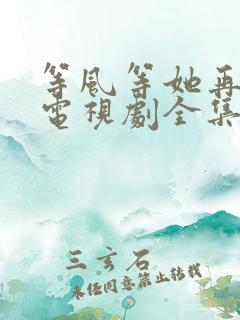 等風等她再
電視劇全集
三玄石
未经同意禁止转载